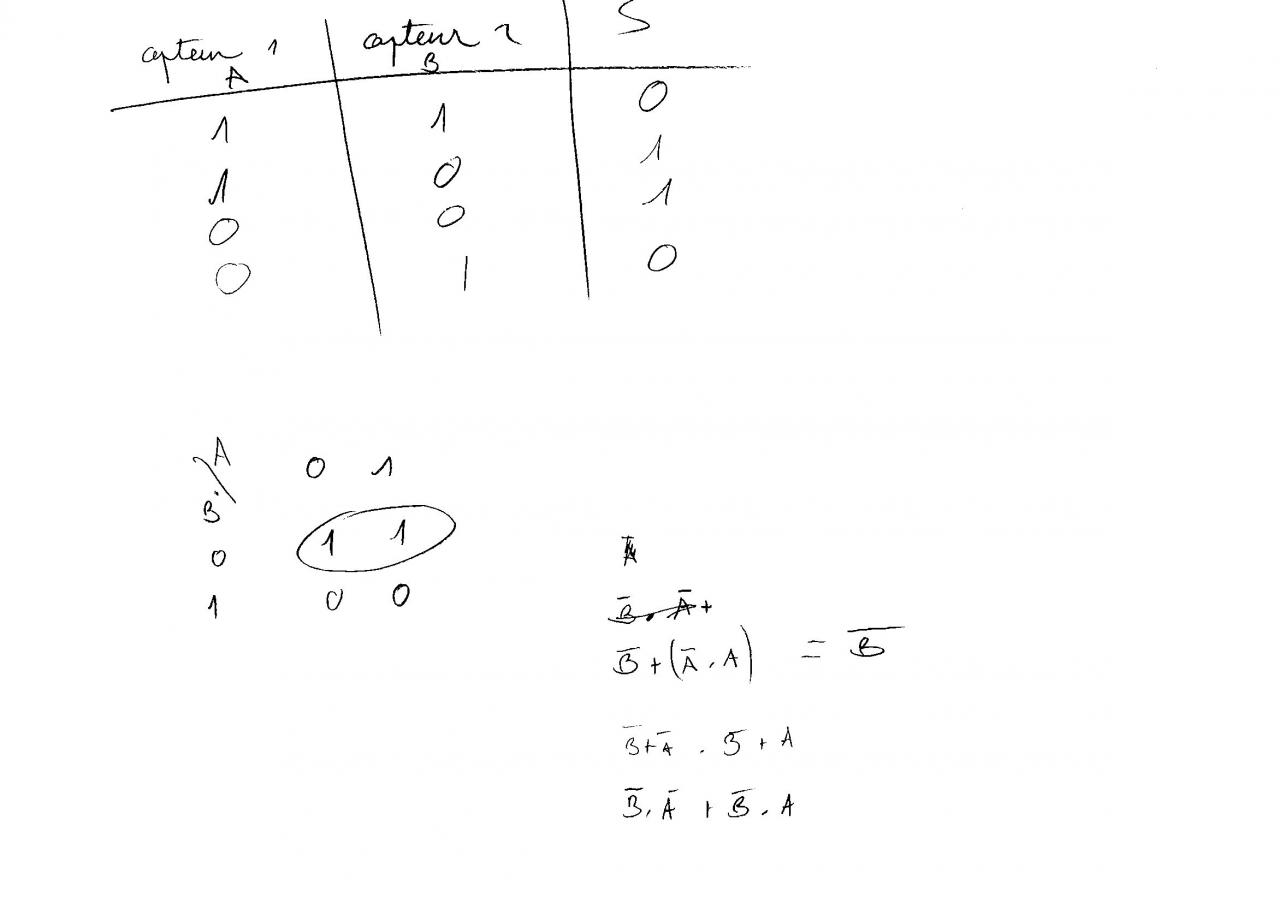 capteur 1 capteur 2 S
A B
1 1 0
1 0 1
0 0 1
0 1 0
A 0 1
B
0 1 1
1 0 0
B̅ . A̅ +
B̅ + (A̅ . A) = B̅
B̅ + A̅ . B̅ + A
B̅ . A̅ + B̅ . A